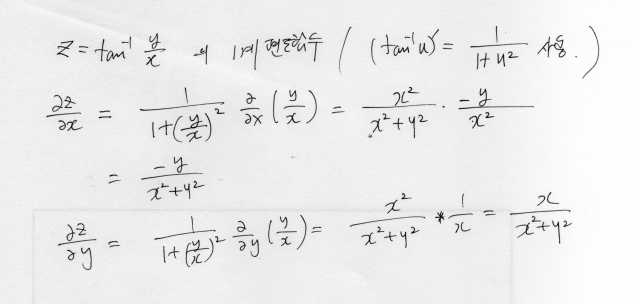 z = tan⁻¹ y/x 의 1계 편도함수 ( (tan⁻¹u)' = 1/(1+u²) 사용. )
∂z/∂x = 1/(1+(y/x)²) ∂/∂x (y/x) = x²/(x²+y²) · -y/x²
= -y/(x²+y²)
∂z/∂y = 1/(1+(y/x)²) ∂/∂y (y/x) = x²/(x²+y²) * 1/x = x/(x²+y²)